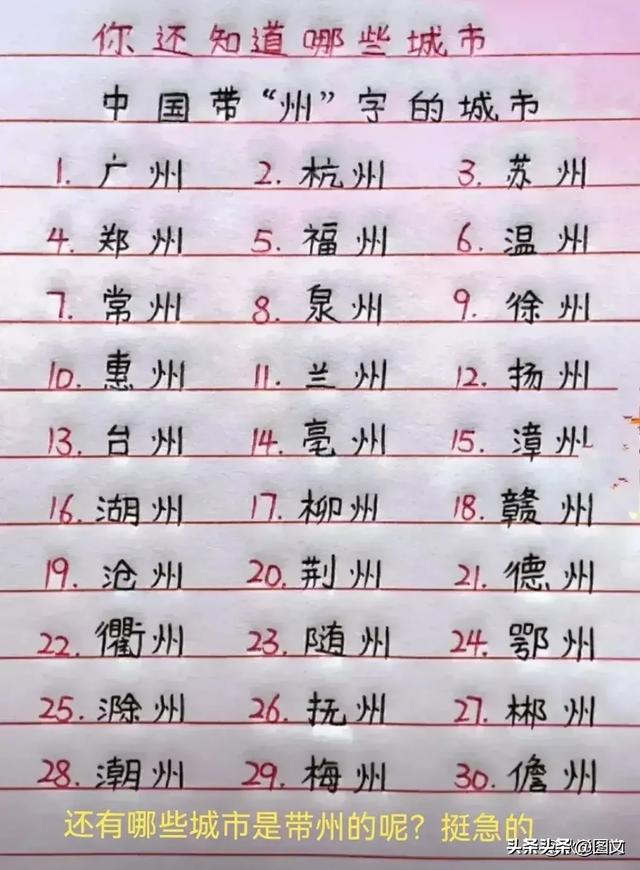 你还知道哪些城市
中国带“州”字的城市
1. 广州 2. 杭州 3. 苏州
4. 郑州 5. 福州 6. 温州
7. 常州 8. 泉州 9. 徐州
10. 惠州 11. 兰州 12. 扬州
13. 台州 14. 毫州 15. 漳州
16. 湖州 17. 柳州 18. 赣州
19. 沧州 20. 荆州 21. 德州
22. 衢州 23. 随州 24. 鄂州
25. 滁州 26. 抚州 27. 郴州
28. 潮州 29. 梅州 30. 儋州
还有哪些城市是带州的呢？挺急的
头条头条 @图文